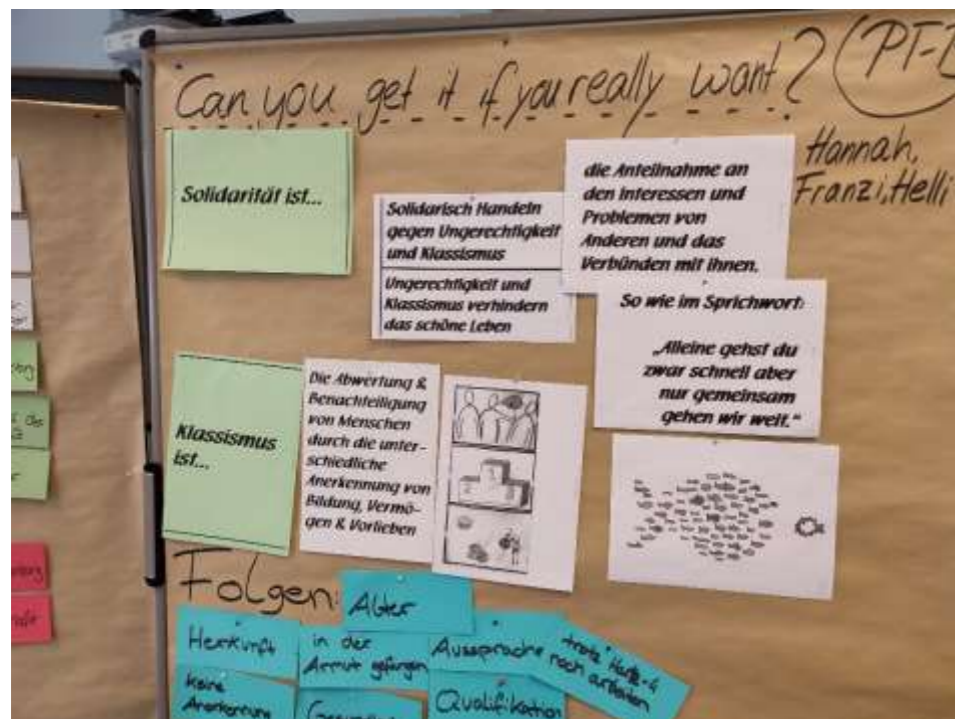 Can you get it if you really want?
(PT-
Hannah,
Franzi, Helli
Solidarität ist...
Solidarisch Handeln
gegen Ungerechtigkeit
und Klassismus
Ungerechtigkeit und
Klassismus verhindern
das schöne Leben
die Anteilnahme an
den Interessen und
Problemen von
Anderen und das
Verbünden mit ihnen.
So wie im Sprichwort:
„Alleine gehst du
zwar schnell aber
nur gemeinsam
gehen wir weit.“
Klassismus
ist...
Die Abwertung &
Benachteiligung
von Menschen
durch die unter-
schiedliche
Anerkennung von
Bildung, Vermö-
gen & Vorlieben
Folgen:
Alter
Herkunft
in der
Armut gefangen
Aussprache
trotz Hartz-4
noch arbeiten
keine
Anerkennung
Qualifikation